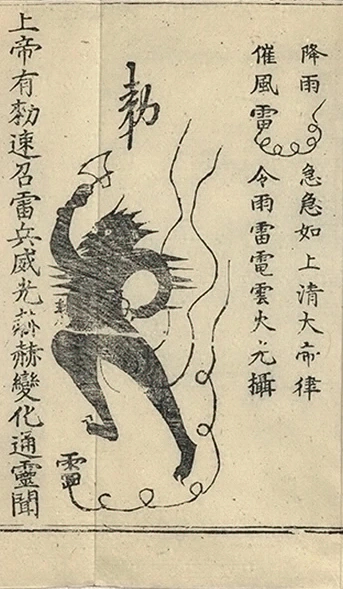 降雨 急急如上清大帝律
催風雷 令雨雷電雲火攝
勅
雷
上帝有勅速召雷兵威光赫赫變化通靈聞